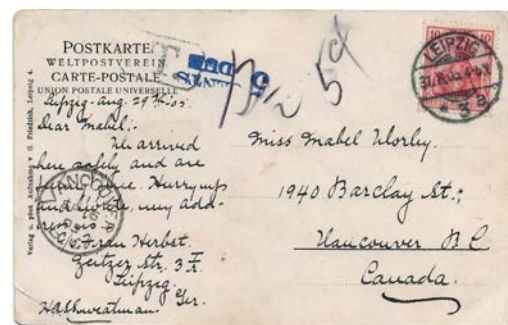 POSTKARTE
WELTPOSTVEREIN
CARTE-POSTALE
UNION POSTALE UNIVERSELLE
Verlag u. phot. Aufnahme v. G. Friedrich, Leipzig 4.
T
5
CENTS
DUE
10 10
LEIPZIG
Leipzig - Aug. 29th/05.
Dear Mabel:-
We arrived
here safely and are
fine. Hurry up
and write, my add-
ress is
Frau Herbst.
Zeitzer Str. 3
Leipzig.
Ger.
VANCOUVER
Miss Mabel Worley.
1940 Barclay St.;
Vancouver B C
Canada.